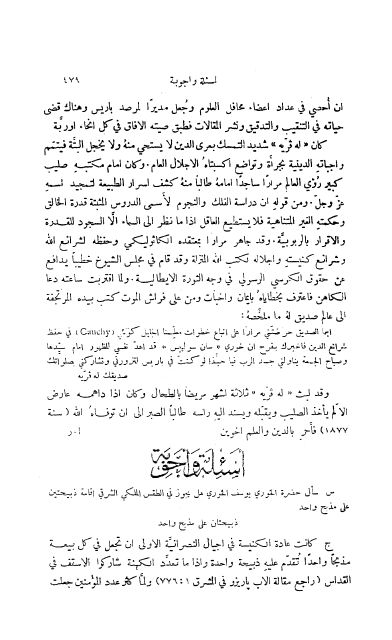 اسئلة واجوبة ٤٧٦
ان أُحصي في عداد اعضاء محافل العلوم وجُعل مديرًا لمرصد باريس وهناك قضى
حياته في التنقيب والتدقيق ونشر المقالات فطبق صيته الآفاق في كل انحاء اوربَّة
كان «له ڤرّيه» شديد التمسك بعرى الدين لا يستحي منهُ ولا يخجل البتَّة فيتمّم
واجباته الدينية بجرأة وتواضع اكسبتاهُ الاجلال العام. وكان امام مكتبه صليب
كبير رُؤي العالم مرارًا ساجدًا امامهُ طالبًا منهُ كشف اسرار الطبيعة لتمجيد اسمهِ
عزَّ وجلّ. ومن قوله ان دراسة الفلك والنجوم لأسمى الدروس المثبتة قدرة الخالق
وحكمته الغير المتناهية فلا يستطيع العاقل اذا ما نظر الى السماء الَّا السجود للقدرة
والاقرار بالربوبيَّة. وقد جاهر مرارًا بمعتقده الكاثوليكي وحفظه لشرائع الله
وشرائع كنيسته واجلاله لكتب الله المنزلة وقد قام في مجلس الشيوخ خطيبًا يدافع
عن حقوق الكرسي الرسولي في وجه الثورة الايطالية. ولمَّا اقتربت ساعته دعا
الكاهن فاعترف بخطاياهُ بايمان واخبات ومن على فراش الموت كتب بيده المرتجفة
الى عالم صديق له ما ملخَّصهُ:
ايها الصديق حرضتني مرارًا على اتباع خطوات معلِّمنا الجليل كوشي (Cauchy) في حفظ
شرائع الدين فاخبرك بفرح ان خوري «سان سولپيس» قد اعدَّ نفسي للظهور امام سيّدها
وصباح الجمعة يناولني جسد الرب فيا حبَّذا لو كنتَ في باريس لتزورني وتشاركني بصلواتك
صديقك له ڤرّيه
وقد لبث «له ڤرّيه» ثلاثة اشهر مريضًا بالطحال وكان اذا داهمهُ عارض
الالم يأخذ الصليب ويقبّله ويسند اليه راسه طالبًا الصبر الى ان توفَّاهُ الله (سنة
١٨٧٧) فأجرِ بالدين والعلم اخوين
اسئلة واجوبة
س سأل حضرة الخوري يوسف الخوري هل يجوز في الطقس الملكي الشرقي اقامة ذبيحتين
على مذبح واحد
ذبيحتان على مذبح واحد
ج كانت عادة الكنيسة في اجيال النصرانيَّة الاولى ان تجعل في كل بيعة
مذبحًا واحدًا تُقدَّم عليه ذبيحة واحدة واذا ما تعدَّد الكهنة شاركوا الاسقف في
القداس (راجع مقالة الاب پاريزو في المشرق ٧٧٦:١) ولمَّا كثر عدد المؤمنين جعلت